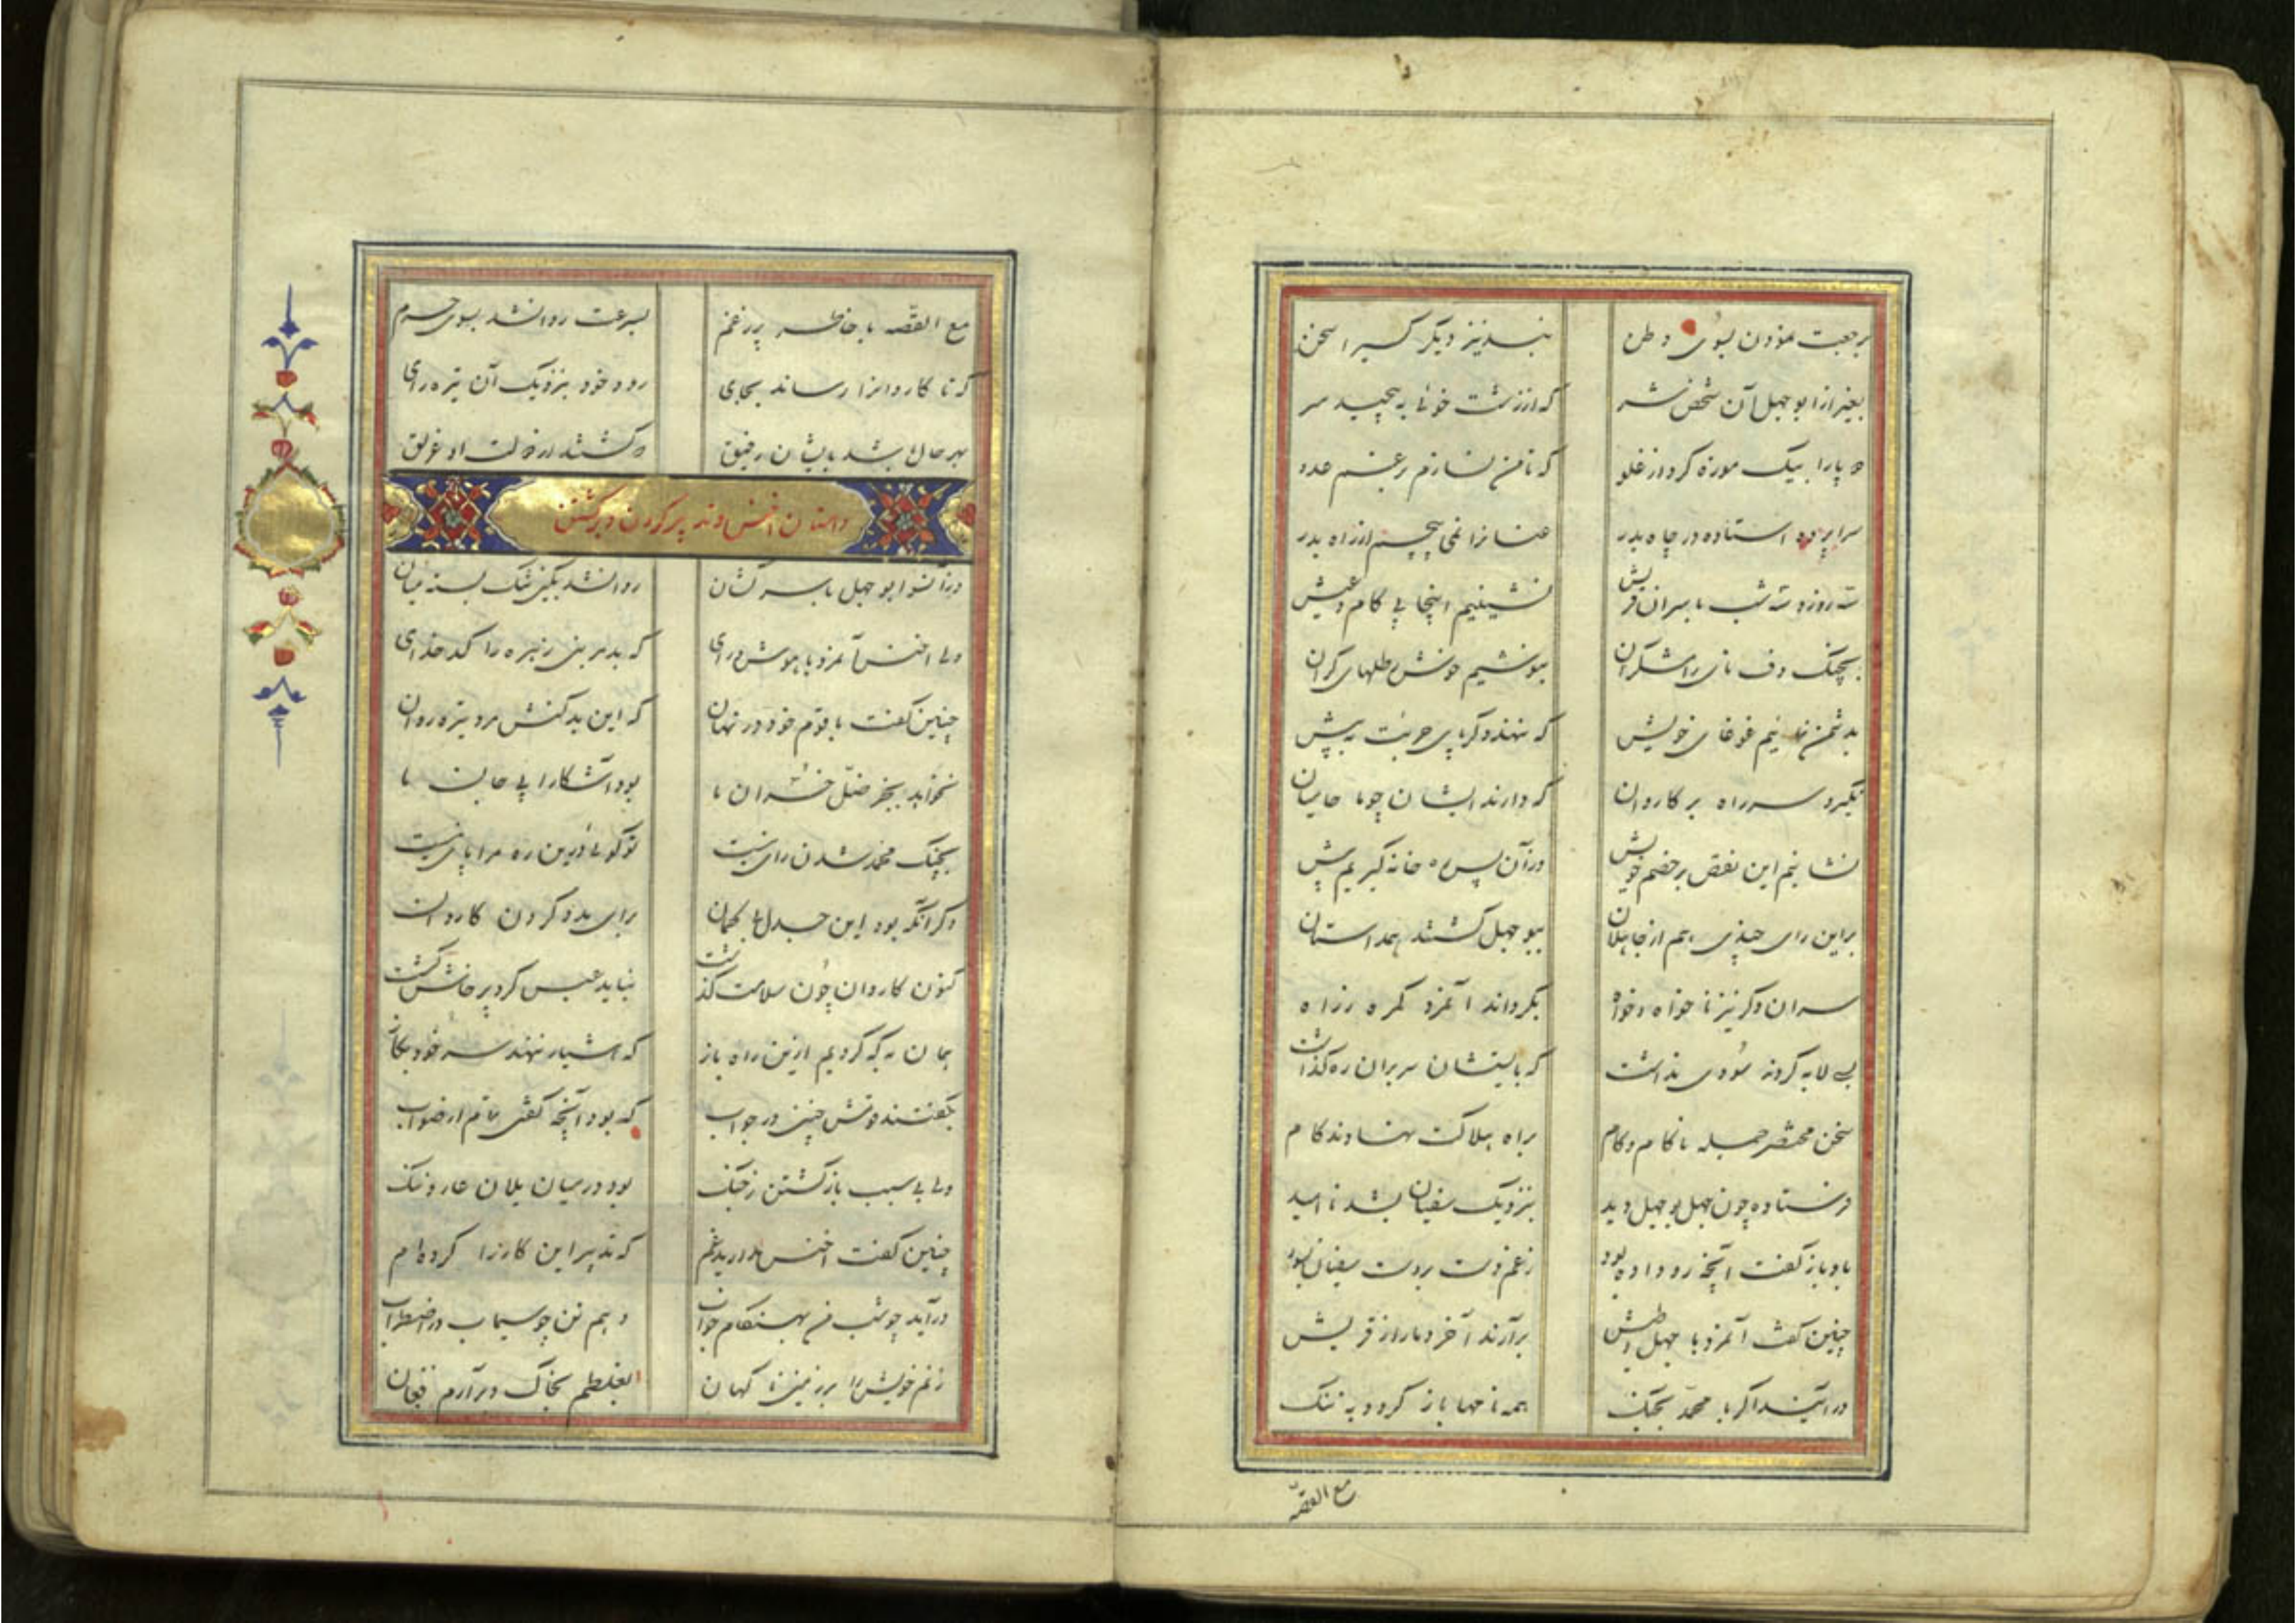 برجعت نمودن بسوی وطن نبد نیز دیگر کسیرا سخن
بغیر از ابوجهل آن شخص شر که از زشت خوئی به پیچید سر
دو پا را بیک موزه کرد از غلو که تا من نسازم رغم عدو
سراپرده استاده در چاه بدر عنانرا نمی پیچم از راه بدر
سه روز و سه شب با سران قریش نشینیم اینجا پی کام و عیش
بچنگ و دف و نای رامشگران بنوشیم خوش رطلهای گران
بدشمن نمائیم غوغای خویش که ننهد دگر پای جرئت به پیش
نگیرد سر راه بر کاروان که دارند ایشان چو ما حامیان
نشانیم این نقض بر خصم خویش در آن پس ره خانه گیریم پیش
براین رای چندی هم از جاهلان ببوجهل گشتند همداستان
سران دگر نیز ناخواه و خواه بگرداند آنمرد گمره ز راه
بسی لابه کردند سودی نداشت که بایستشان سر بران ره گذاشت
سخن مختصر جمله ناکام و کام براه هلاکت نهادند گام
فرستاده چون جهل بوجهل دید بنزدیک سفیان بشد ناامید
باو باز گفت آنچه رو داده بود ز غم دست بر دست سفیان بسود
چنین گفت آنمرد با جهل و طیش برآرند آخر دمار از قریش
درآیند اگر با محمد بجنگ همه نامها باز گردد به ننگ
مع القصّه
مع القصّه با خاطر پر ز غم بسرعت روانشد بسوی حرم
که تا کاروانرا رساند بجای رود خود بنزدیک آن تیره رای
بهر حال باشد بایشان رفیق که گشتند در ذلت او غریق
داستان اخنس و تدبیر کردن و برگشتن
در آنسو ابوجهل با سرکشان روانشد بکین تنگ بسته میان
ولی اخنس آنمرد با هوش و رای که بد بر بنی زهره را کدخدای
چنین گفت با قوم خود در نهان که این بدکنش مرد تیره روان
نخواهد بجز ضل و خسران ما بود آشکارا پی جان ما
بجنگ محمد شدن رای نیست تو گوئی درین ره مرا پای نیست
وگر آنکه بود این جدل با کهان برای مدد کردن کاروان
کنون کاروان چون سلامت گذشت نباید عبس گرد پرخاش گشت
همان به که گردیم ازین راه باز که اشرار ننهند سر خود بکار
بگفتند قومش چنین در جواب که بود آنچه گفتی تمام از صواب
ولی بی سبب باز گشتن ز جنگ بود در میان یلان عار و ننگ
چنین گفت اخنس مدارید غم که تدبیر این کار را کرده ام
درآید چو شب من بهنگام خواب دهم تن چو سیماب در اضطراب
زنم خویش را بر زمین ناگهان بغلطم بخاک و برآرم فغان